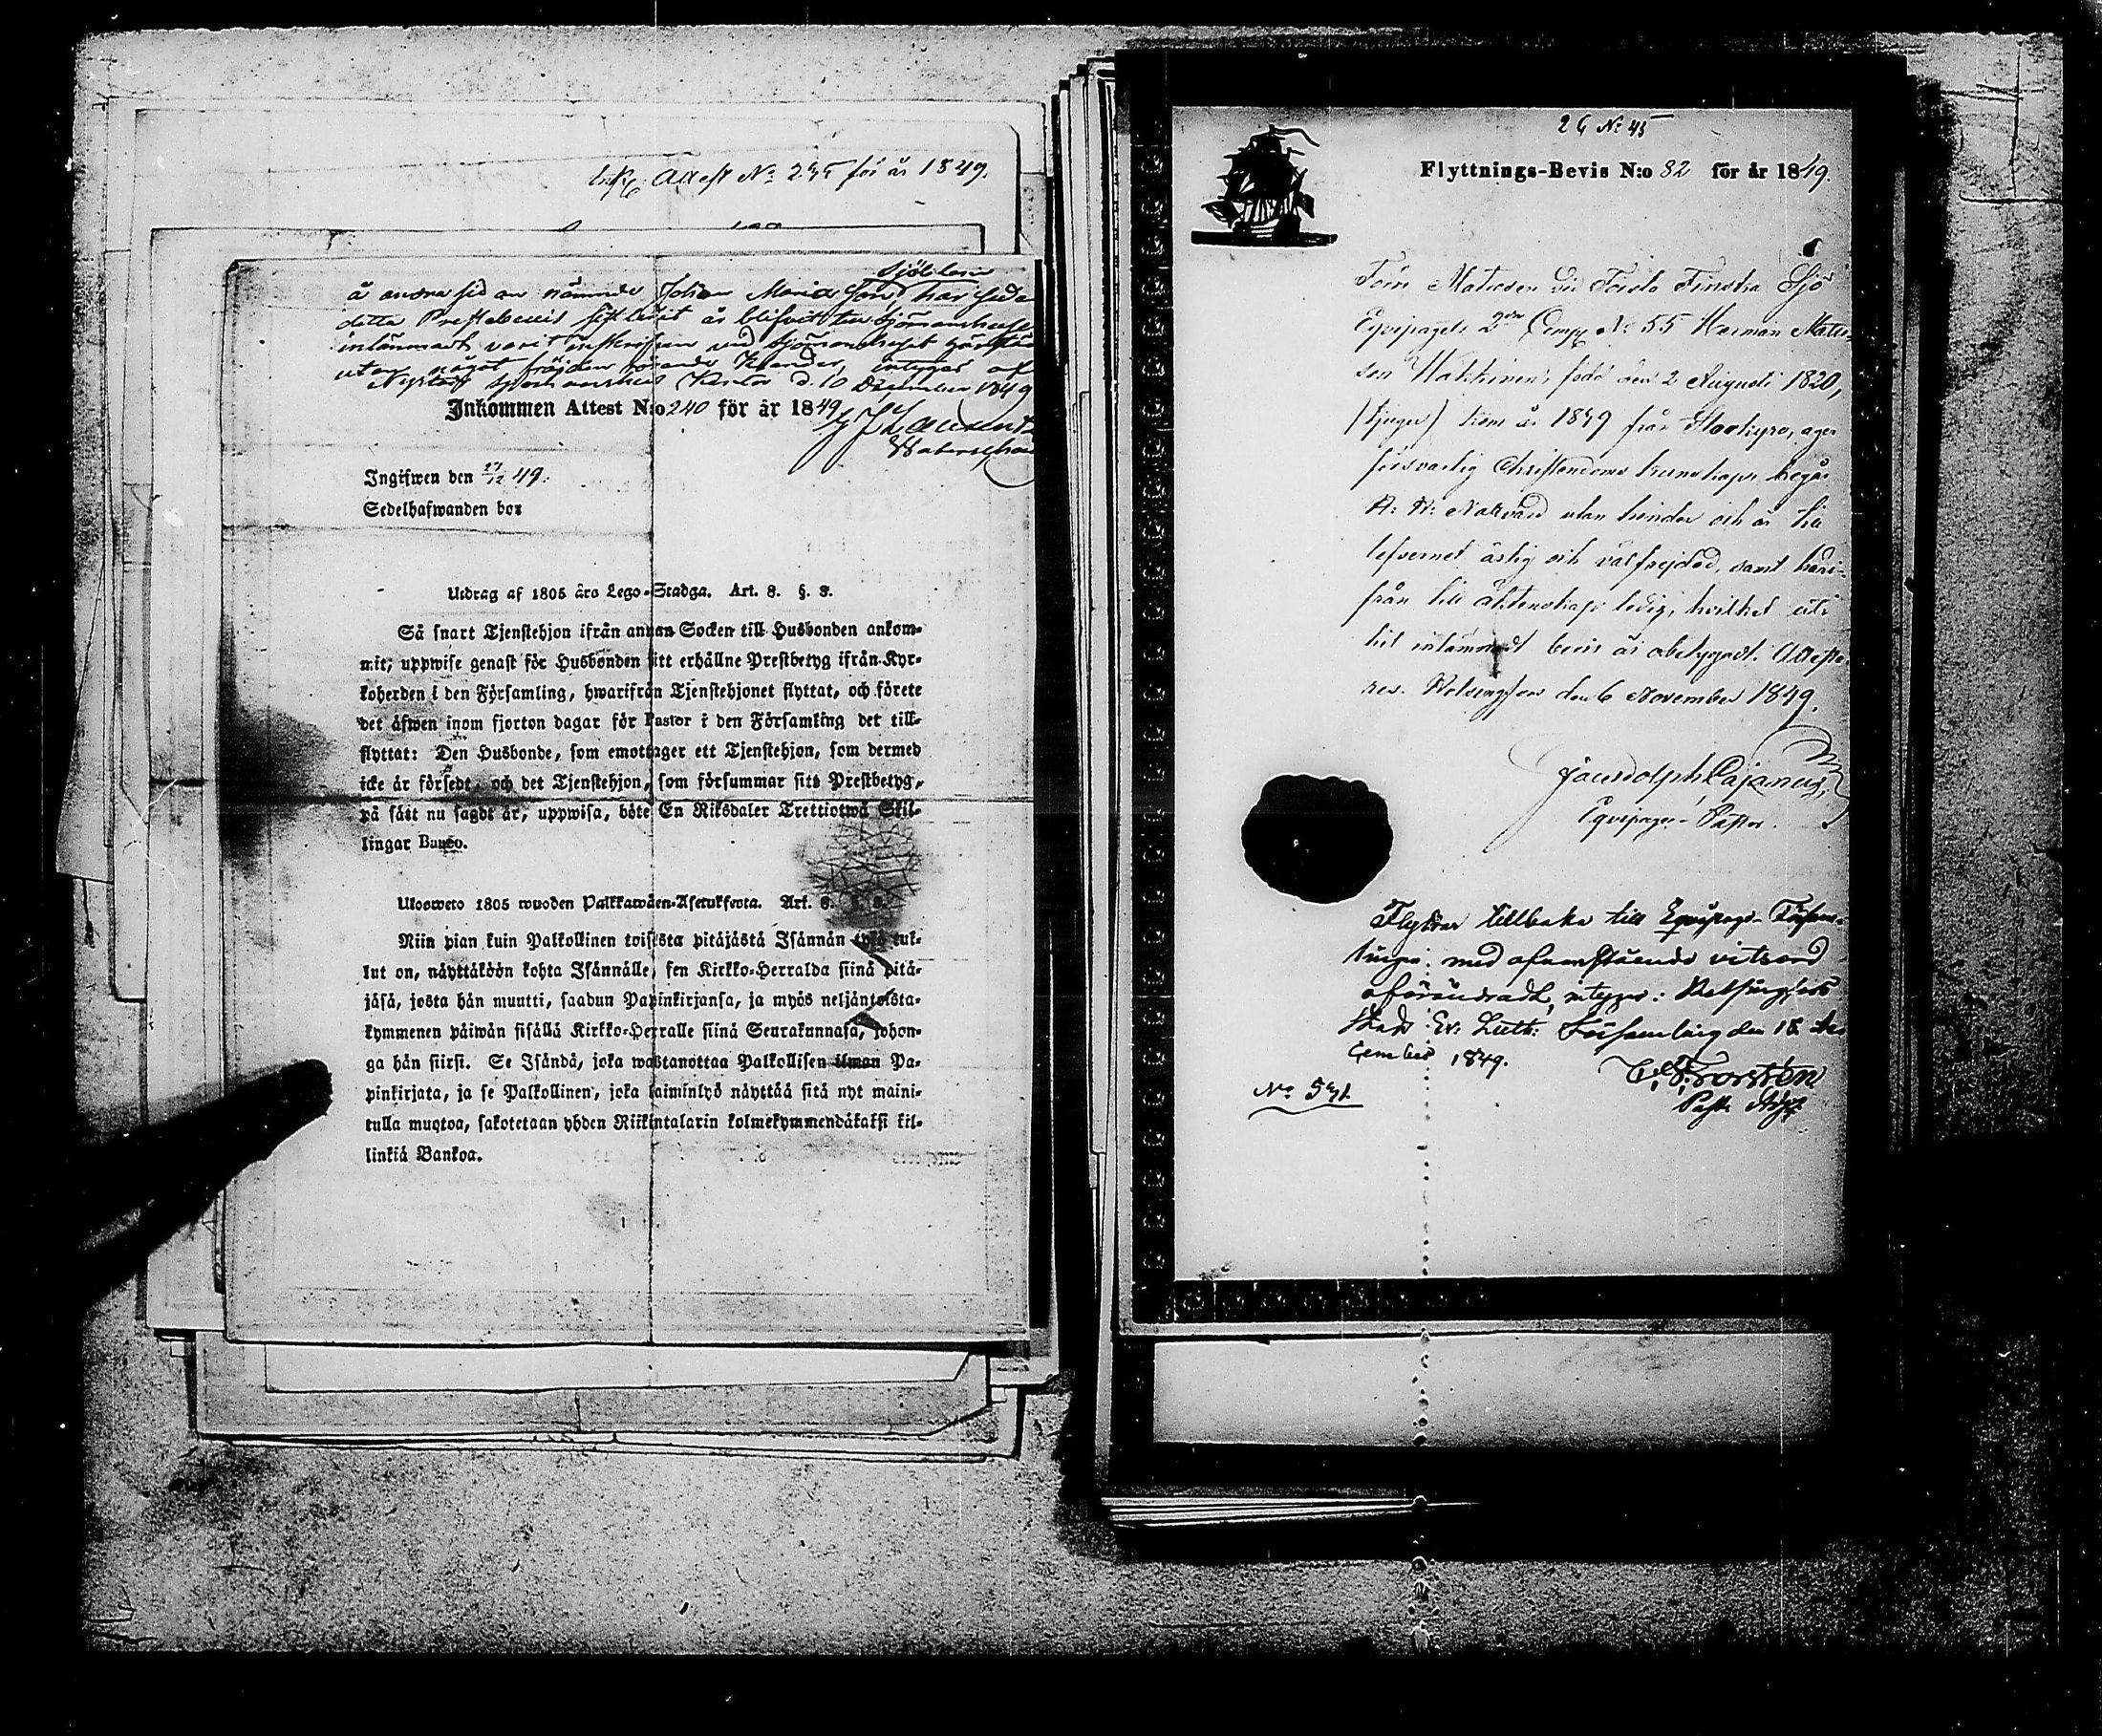 Attest No 235 för år 1849.
Sjöblom
å andra sid an nämnde Johan Maria Son har sedan
detta Prestebevis sistledit år blifvit till Sjömanshuset
inlämnadt varit inskrifven vid Sjömanshuset härstädes
utan något frägden rörande Klander, intygas af
Nystad Sjömanshus Kontor d. 10 December 1849
Inkommen Attest N:o 240 för år 1849
Ingifwen den 27/12 49.
Sedelhafwanden bor
Utdrag af 1805 års Lego-Stadga. Art. 8. §. 8.
Så snart Tjenstehjon ifrån annan Socken till Husbonden ankom-
mit, uppwise genast för Husbonden sitt erhållne Prestbetyg ifrån Kyr-
koherden i den Församling, hwarifrån Tjenstehjonet flyttat, och förete
det äfwen inom fjorton dagar för Pastor i den Församling det till-
flyttat: Den Husbonde, som emottager ett Tjenstehjon, som dermed
icke är försedt, och det Tjenstehjon, som försummar sitt Prestbetyg,
på sätt nu sagdt är, uppwisa, böte En Riksdaler Trettiotwå Skil-
lingar Banco.
Ulosweto 1805 wuoden Palkkawäen-Asetuksesta. Art. 8.
Niin pian kuin Palkollinen toisesta pitäjästä Isännän tykö tul-
lut on, näyttäköön kohta Isännälle, sen Kirkko-Herralda siinä pitä-
jäsä, josta hän muutti, saadun Papinkirjansa, ja myös neljäntoista-
kymmenen päiwän sisällä Kirkko-Herralle siinä Seurakunnasa, johon-
ga hän siirsi. Se Isändä, joka wastanottaa Palkollisen ilman Pa-
pinkirjata, ja se Palkollinen, joka laiminlyö näyttää sitä nyt maini-
tulla muotoa, sakotetaan yhden Riikintalarin kolmekymmendäkaksi kil-
linkiä Bankoa.
2 G No 45
Flyttnings-Bevis N:o 82 för år 1849.
Förre Matrosen vid Första Finska Sjö
Eqvipagets 2dra Comp No 55 Herman Mats-
son Wakkinen, född den 2 Augusti 1820,
kom år 1849 från Storkyro, äger
försvarlig Christendoms kunskap, begår
H: H: Nattvard utan hinder och är till
lefvernet ärlig och välfrejdad, samt häri-
från till äktenskap ledig, hvilket uti
hit inlämnadt bevis är obetygadt. Atteste-
res. Helsingfors den 6 November 1849.
Pajanus,
Eqvipage-Pastor.
Flyttar tillbaka till Eqvipage-Församl-
lingen med ofvanstående vitsord
oförändradt, intygar: Helsingfors
Stads Ev. Luth: Församling den 18 De-
cember 1849.
C. Forsstén
Past. Adj.
No 571.